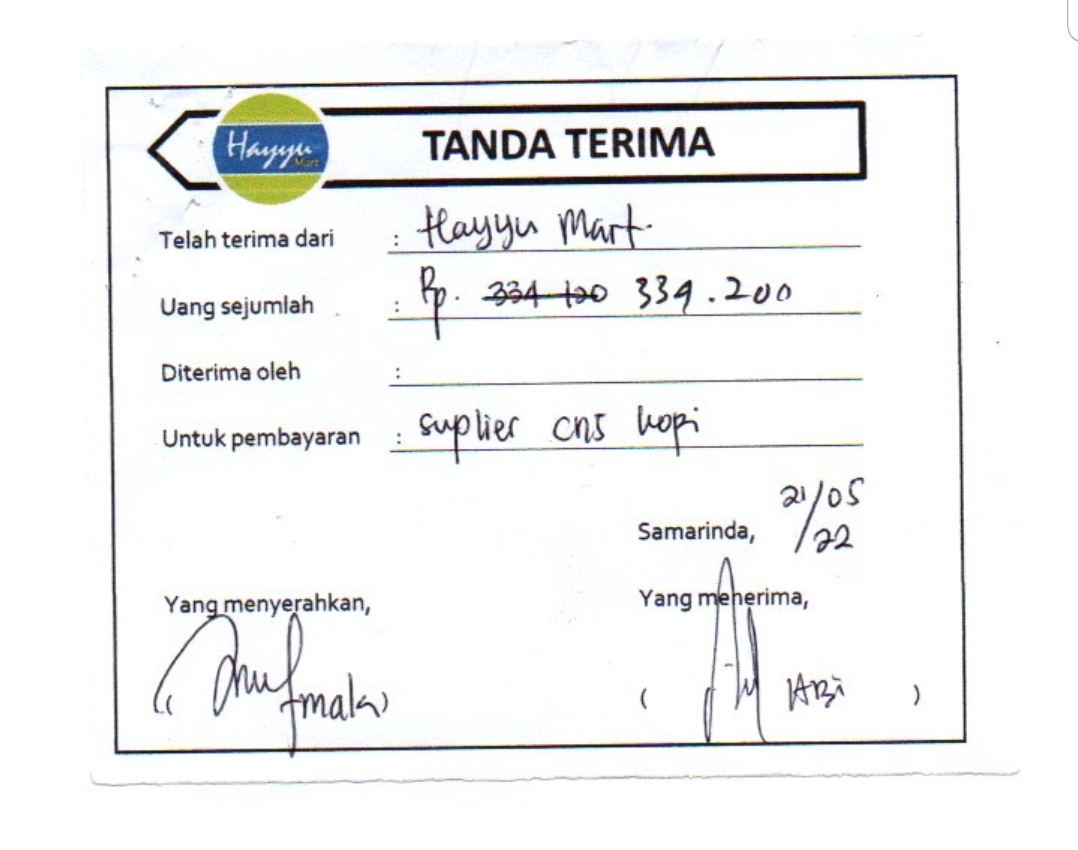 Hayyu Mart
TANDA TERIMA
Telah terima dari : Hayyu Mart.
Uang sejumlah : Rp. 334 120 334.200
Diterima oleh :
Untuk pembayaran : suplier cns kopi
21/05
Samarinda, /22
Yang menyerahkan, Yang menerima,
( ) ( ABi )